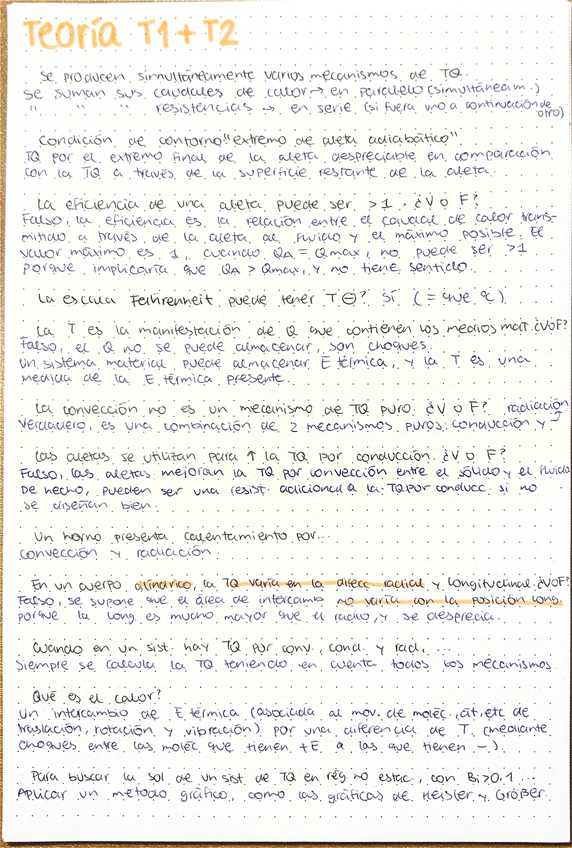 Teoría T1 + T2
Se producen simultáneamente varios mecanismos de TQ
Se suman sus caudales de calor → en paralelo (simultáneam.)
" " " resistencias → en serie (si fuera uno a continuación de otro)
Condición de contorno "extremo de aleta adiabático"
TQ por el extremo final de la aleta despreciable en comparación
con la TQ a través de la superficie restante de la aleta.
La eficiencia de una aleta puede ser >1. ¿V o F?
Falso, la eficiencia es la relación entre el caudal de calor trans-
mitido a través de la aleta al fluido y el máximo posible. El
valor máximo es 1, cuando QA = Qmax, no puede ser >1
porque implicaría que QA > Qmax, y no tiene sentido.
La escala Fahrenheit puede tener T ⊖? Sí (= que ºC)
La T es la manifestación de Q que contienen los medios mat. ¿VoF?
Falso, el Q no se puede almacenar, son choques.
Un sistema material puede almacenar E térmica, y la T es una
medida de la E térmica presente.
La convección no es un mecanismo de TQ puro. ¿V o F?
Verdadero, es una combinación de 2 mecanismos puros: conducción y radiación
Las aletas se utilizan para ↑ la TQ por conducción. ¿V o F?
Falso, las aletas mejoran la TQ por convección entre el sólido y el fluido
De hecho, pueden ser una resist. adicional a la TQ por conducc. si no
se diseñan bien.
Un horno presenta calentamiento por...
convección y radiación.
En un cuerpo cilíndrico, la TQ varía en la direcc. radial y longitudinal ¿VoF?
Falso, se supone que el área de intercamb. no varía con la posición long.
porque la long. es mucho mayor que el radio, y se desprecia.
Cuando en un sist. hay TQ por conv., cond. y rad., ...
Siempre se calcula la TQ teniendo en cuenta todos los mecanismos.
Qué es el calor?
Un intercambio de E térmica (asociada al mov. de moléc., át, etc de
traslación, rotación y vibración) por una diferencia de T (mediante
choques entre las moléc que tienen +E a las que tienen -).
Para buscar la sol de un sist de TQ en rég no estac., con Bi>0,1 ...
Aplicar un método gráfico, como las gráficas de Heisler y Gröber.